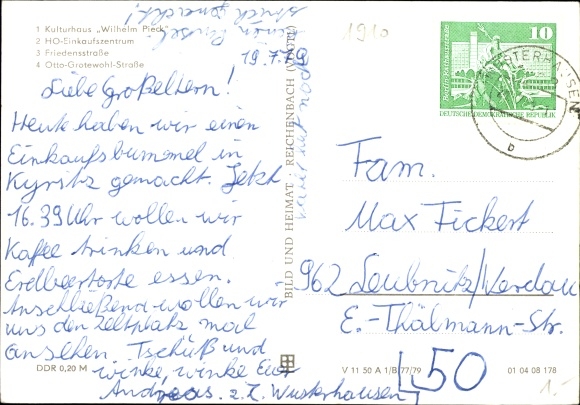 1 Kulturhaus „Wilhelm Pieck“
2 HO-Einkaufszentrum
3 Friedensstraße
4 Otto-Grotewohl-Straße
19.7.79
Liebe Großeltern!
Heute haben wir einen
Einkaufsbummel in
Kyritz gemacht. Jetzt
16.39 Uhr wollen wir
Kaffee trinken und
Erdbeertorte essen.
Anschließend wollen wir
uns den Zeltplatz mal
ansehen. Tschüß und
winke, winke Eure
Andreas. z.Z. Wusterhausen
DDR 0,20 M
BILD UND HEIMAT REICHENBACH (VOGTL)
1910
10
Berlin
DEUTSCHE DEMOKRATISCHE REPUBLIK
WUSTERHAUSEN
b
Fam.
Max Fickert
962 Leubnitz/Werdau
E.-Thälmann-Str.
50
V 11 50 A 1/B 77/79
01 04 08 178
1.-